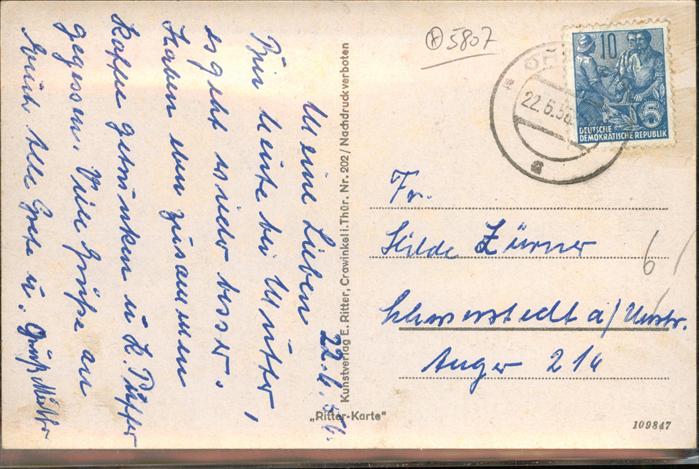 22.6.56.
Meine Lieben
Bin heute bei Mutter,
es geht wieder besser.
Haben eben zusammen
Kaffee getrunken u. K. Puffer
gegessen. Viele Grüße an
Euch Alle Grete u. Großmutter
Kunstverlag E. Ritter, Crawinkel i. Thür. Nr. 202 / Nachdruck verboten
„Ritter-Karte"
5807
22.6.56
a
10
5
DEUTSCHE
DEMOKRATISCHE REPUBLIK
Fr.
Hilde Zürner
Schwerstedt a/Unstr.
Anger 214
6
109847